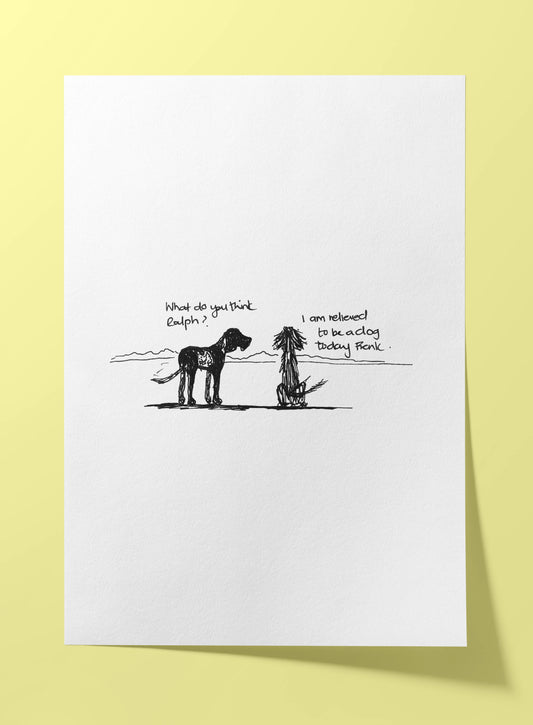 What do you think
Ralph?
I am relieved
to be a dog
today Frank.